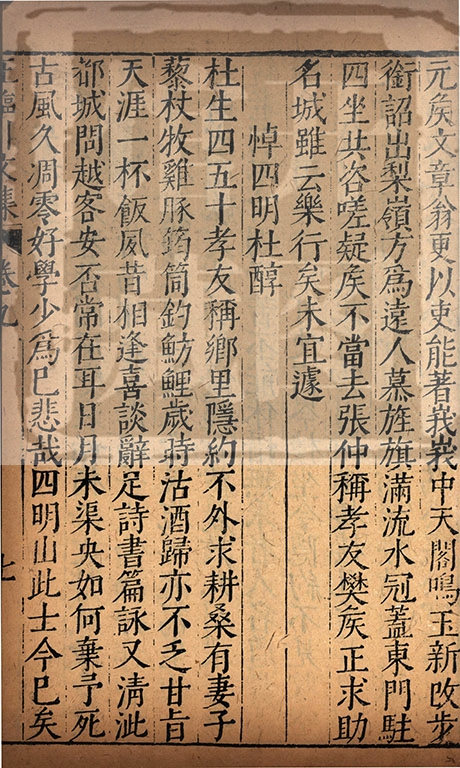 元矦文章翁更以吏能著峩峩中天閣鳴玉新改步
銜詔出梨嶺方爲遠人慕旌旗滿流水冠蓋東門駐
四坐共咨嗟疑矦不當去張仲稱孝友樊矦正求助
名城雖云樂行矣未宜遽
悼四明杜醇
杜生四五十孝友稱鄉里隱約不外求耕桑有妻子
藜杖牧雞豚筠筒釣魴鯉歲時沽酒歸亦不乏甘旨
天涯一杯飯夙昔相逢喜談辭足詩書篇詠又清泚
都城問越客安否常在耳日月未渠央如何棄予死
古風久凋零好學少爲已悲哉四明山此士今已矣
王臨川文集 卷九